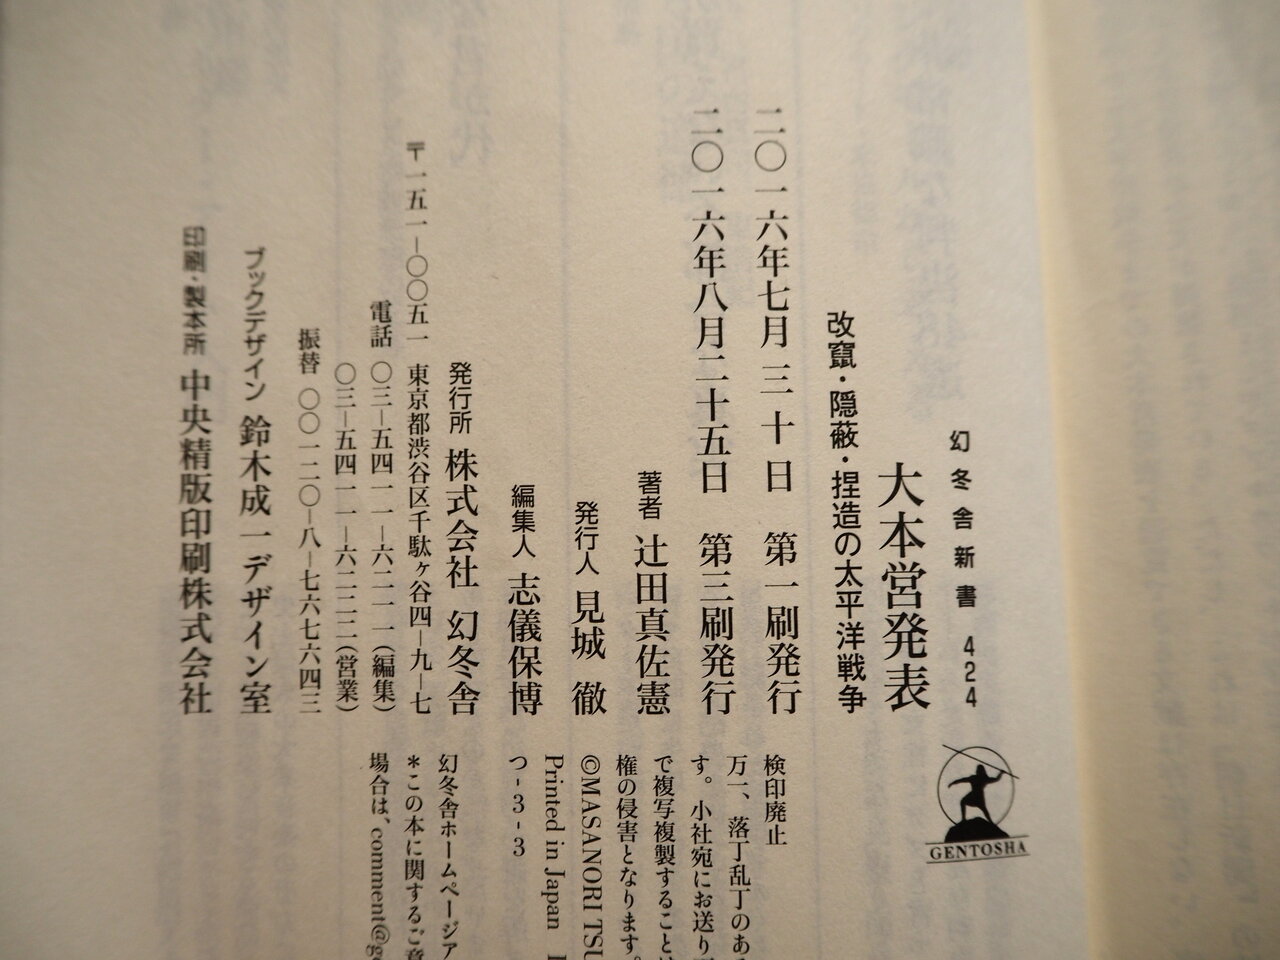 幻冬舎新書 424
大本営発表
改竄・隠蔽・捏造の太平洋戦争
二〇一六年七月三十日 第一刷発行
二〇一六年八月二十五日 第三刷発行
著者 辻田真佐憲
発行人 見城 徹
編集人 志儀保博
発行所 株式会社 幻冬舎
〒一五一-〇〇五一 東京都渋谷区千駄ヶ谷四-九-七
電話 〇三-五四一一-六二一一(編集)
〇三-五四一一-六二二二(営業)
振替 〇〇一二〇-八-七六七六四三
ブックデザイン 鈴木成一デザイン室
印刷・製本所 中央精版印刷株式会社
GENTOSHA
検印廃止
万一、落丁乱丁のある
す。小社宛にお送り
で複写複製することは
権の侵害となります。
©MASANORI TSU
Printed in Japan
つ-3-3
幻冬舎ホームページア
*この本に関するご意
場合は、comment@ge